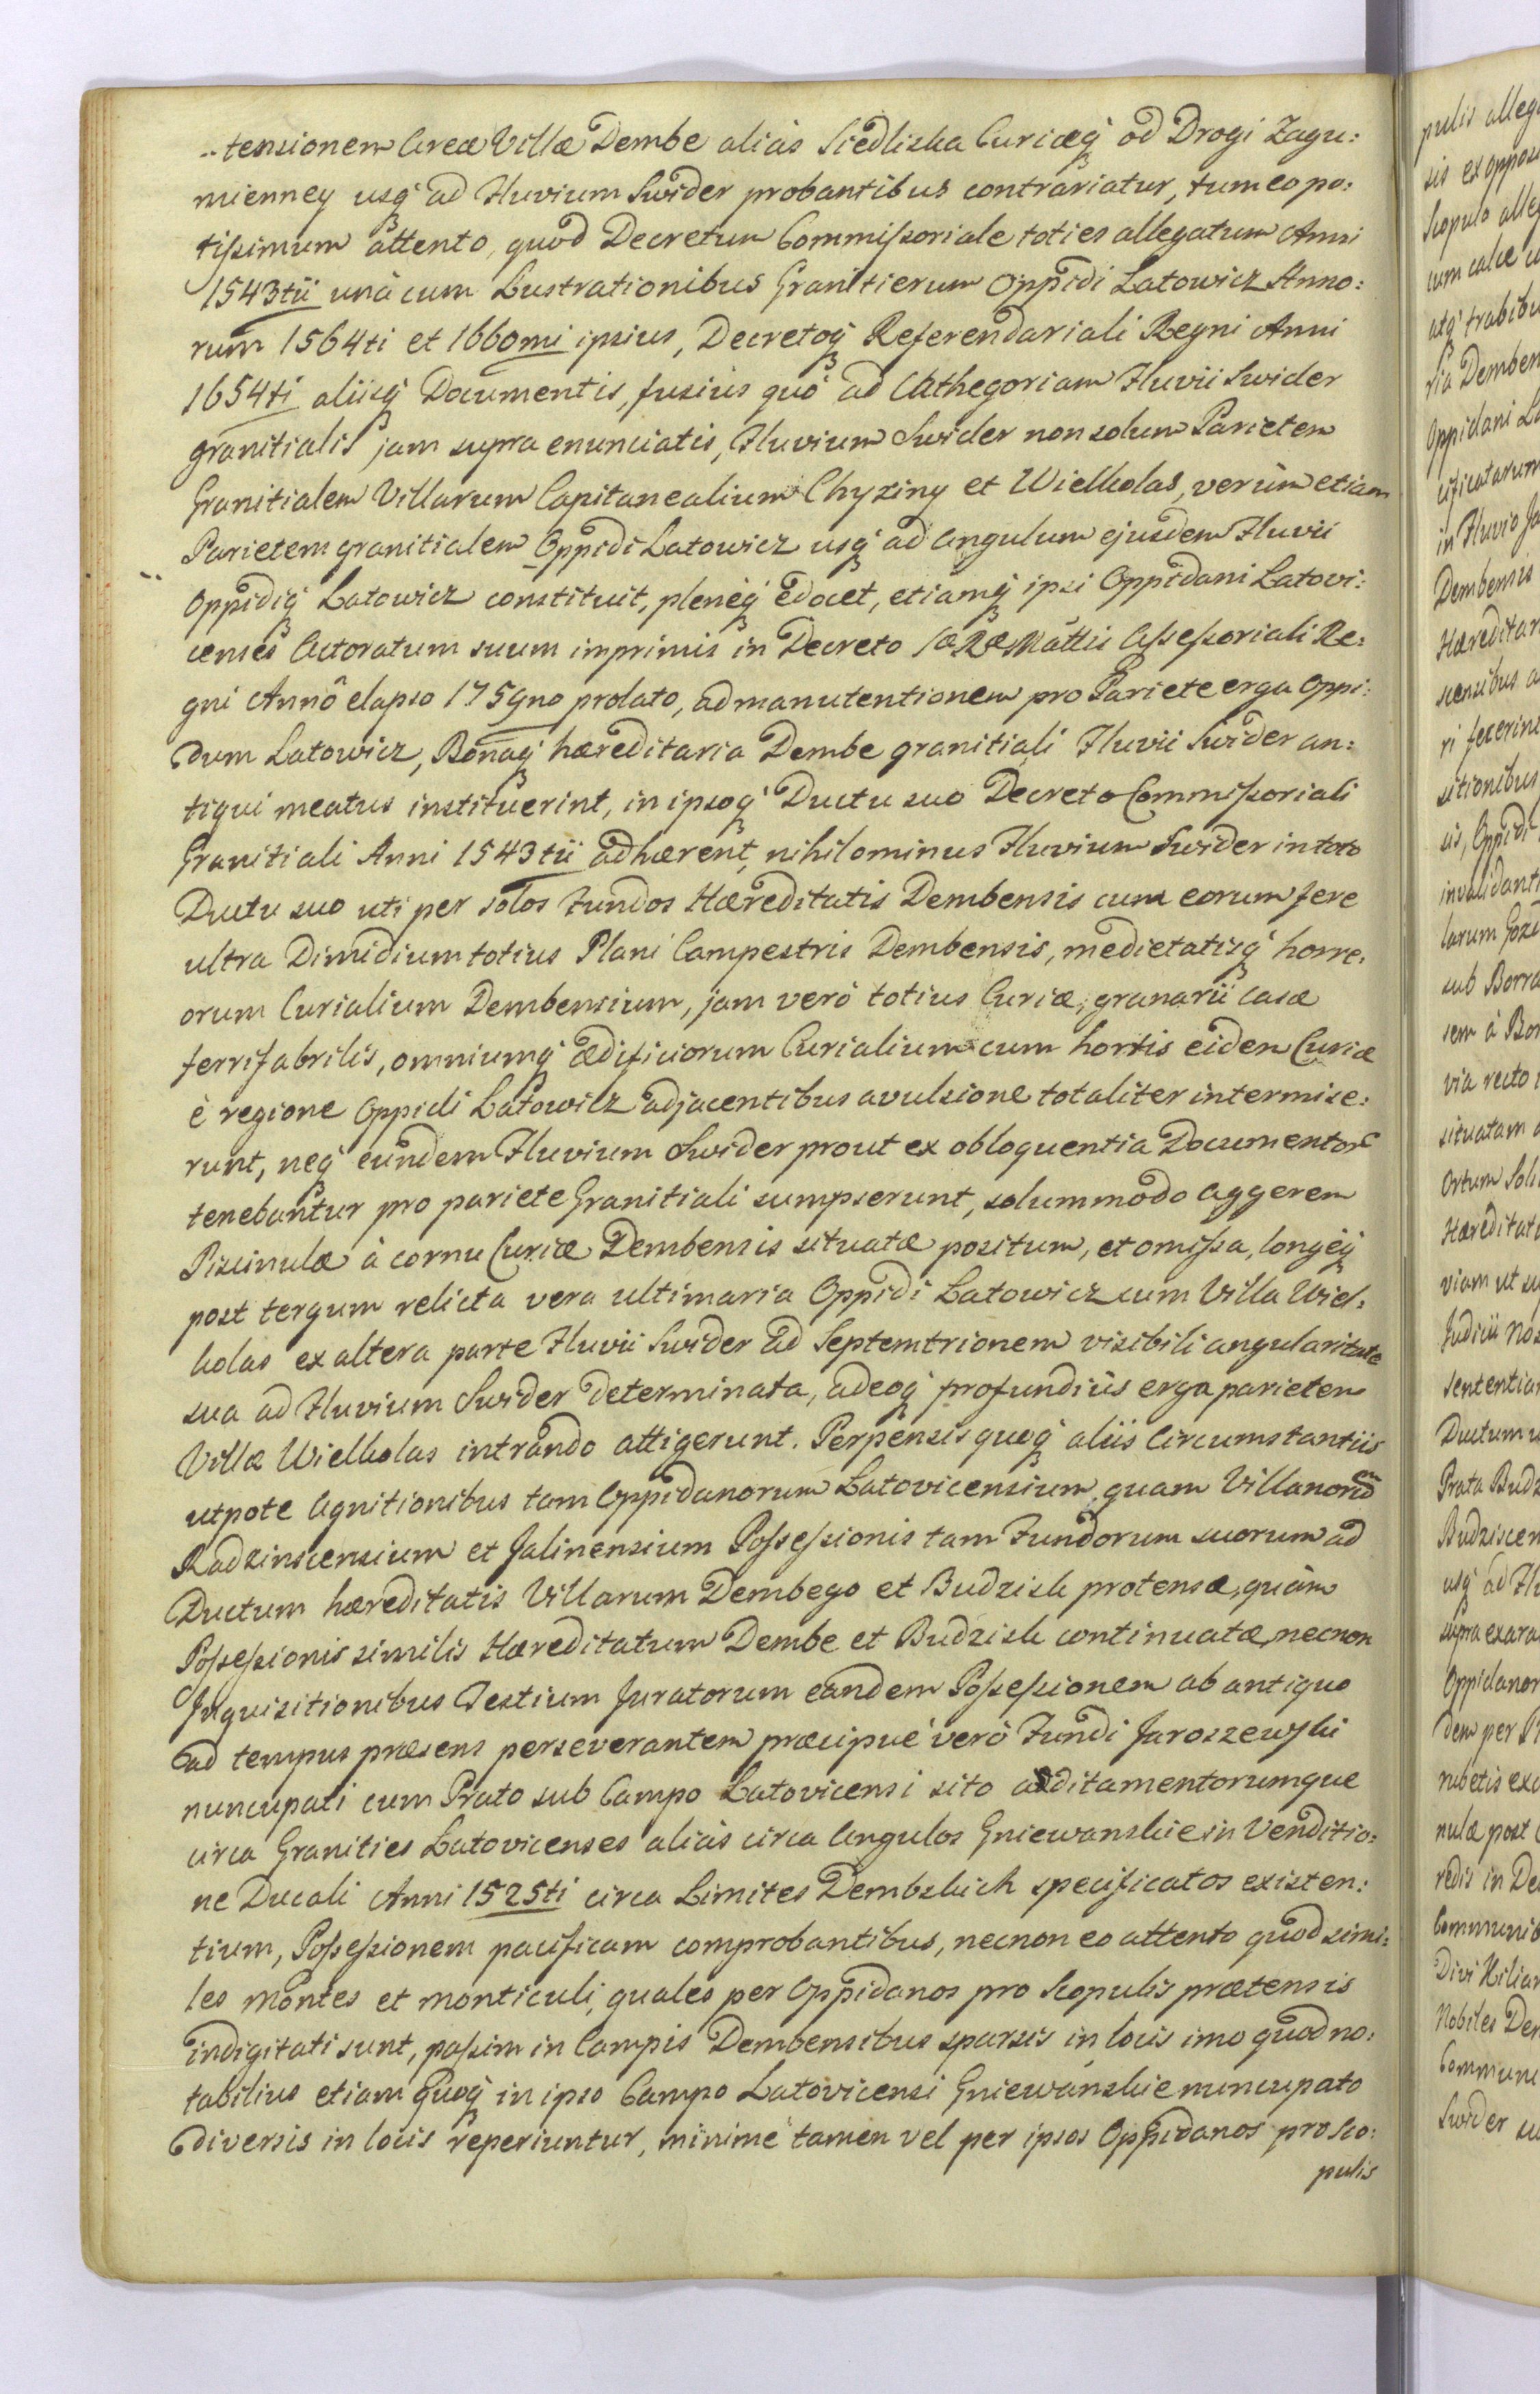 tensionem Areæ Villæ Dembe aliàs Siedliska Curiæq́ od Drogi Zagu:
mienney usq́ ad Fluvium Swider probantibus contrariatur, tum eo po:
tissimum attento, quod Decretum Commissoriale toties allegatum Anni
1543tii unà cum Lustrationibus Granitierum Oppidi Latowicz Anno:
rum 1564ti et 1660mi ipsius, Decretoq́ Referendariali Regni Anni
1654ti aliisq́ Documentis, fusiùs quò ad Cathegoriam Fluvii Swider
granitialis jam supra enunciatis, Fluvium Swider non solum Parietem
Granitialem Villarum Capitanealium Chyziny et Wielkolas, verùm etiam
Parietem granitialem Oppidi Latowicz usq́ ad angulum ejusdem Fluvii
Oppidiq́ Latowicz constituit, plenèq́ edocet, etiamq́ ipsi Oppidani Latovi:
censes Actoratum suum imprimis in Decreto SæRæMáttis Assessoriali Re:
gni Annô elapso 1759no prolato, ad manutentionem pro Pariete erga Oppi:
dum Latowicz, Bonaq́ hæreditaria Dembe granitiali Fluvii Swider an:
tiqui meatus instituerint, in ipsoq́ Ductu suo Decreto Commissoriali
Granitiali Anni 1543tii adhærent, nihilominus Fluvium Swider in toto
Ductu suo uti per solos Fundos Hæreditatis Dembensis cum eorum fere
ultra Dimidium totius Plani Campestris Dembensis, medietatisq́ horre:
orum Curialium Dembensium, jam verò totius Curiæ, granarii casæ
ferrifabrilis, omniumq́ ædificiorum Curialium cum hortis eidem Curiæ
è regione Oppidi Latowicz adjacentibus avulsione totaliter intermise:
runt, neq́ eundem Fluvium Swider prout ex obloquentia Documentor
tenebantur pro pariete Granitiali sumpserunt, solummodo aggerem
Piscinulæ à cornu Curiæ Dembensis situatæ positum, et omissa, longèq́
post tergum relicta vera ultimaria Oppidi Latowicz cum Villa Wiel:
kolas ex altera parte Fluvii Swider ad Septemtrionem visibili angularitate
sua ad Fluvium Swider determinata, adeoq́ profundiùs erga parietem
Villæ Wielkolas intrando attigerunt. Perpensis quoq́ aliis Circumstantiis
utpote Agnitionibus tam Oppidanorum Latovicensium quam Villanorum
Radzinscensium et Jalinensium Possessionis tam Fundorum suorum ad
Ductum hæreditatis Villarum Dembego et Budzisk protensæ, quàm
Possessionis similis Hæreditatum Dembe et Budzisk continuatæ, necnon
Inquisitionibus Testium Juratorum eandem Possessionem ab antiquo
ad tempus præsens perseverantem præcipuè verò Fundi Jaroszewski
nuncupati cum Prato sub Campo Latovicensi sito additamentorumque
circa Granities Latovicenses aliàs circa Angulos Gniewanskie in Venditio:
ne Ducali Anni 1525ti circa Limites Dembskich specificatos existen:
tium, Possessionem pacificam comprobantibus, necnon eo attento quod simi:
les montes et monticuli, quales per Oppidanos pro Scopulis prætensis
indigitati sunt, passim in Campis Dembensibus sparsis in locis imo quod no:
tabilius etiam quoq́ in ipso Campo Latovicensi Gniewánskie nuncupato
diversis in locis reperiuntur, minimè tamen vel per ipsos Oppidanos pro Sco:
pulis